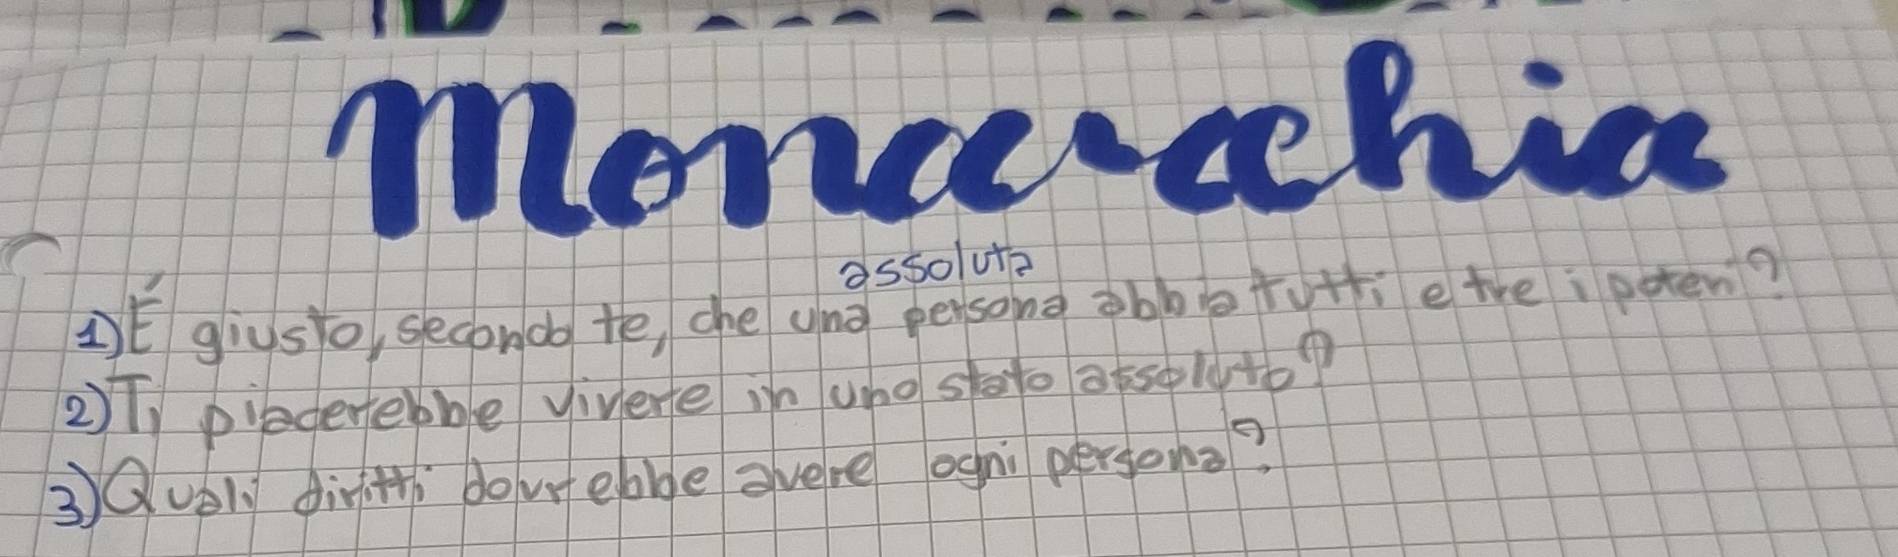 Monarchia
assoluta
1) É giusto, secondo te, che una persona abbia tutti e tre i poteri?
2) Ti piacerebbe vivere in uno stato assoluto?
3) Quali diritti dovrebbe avere ogni persona?